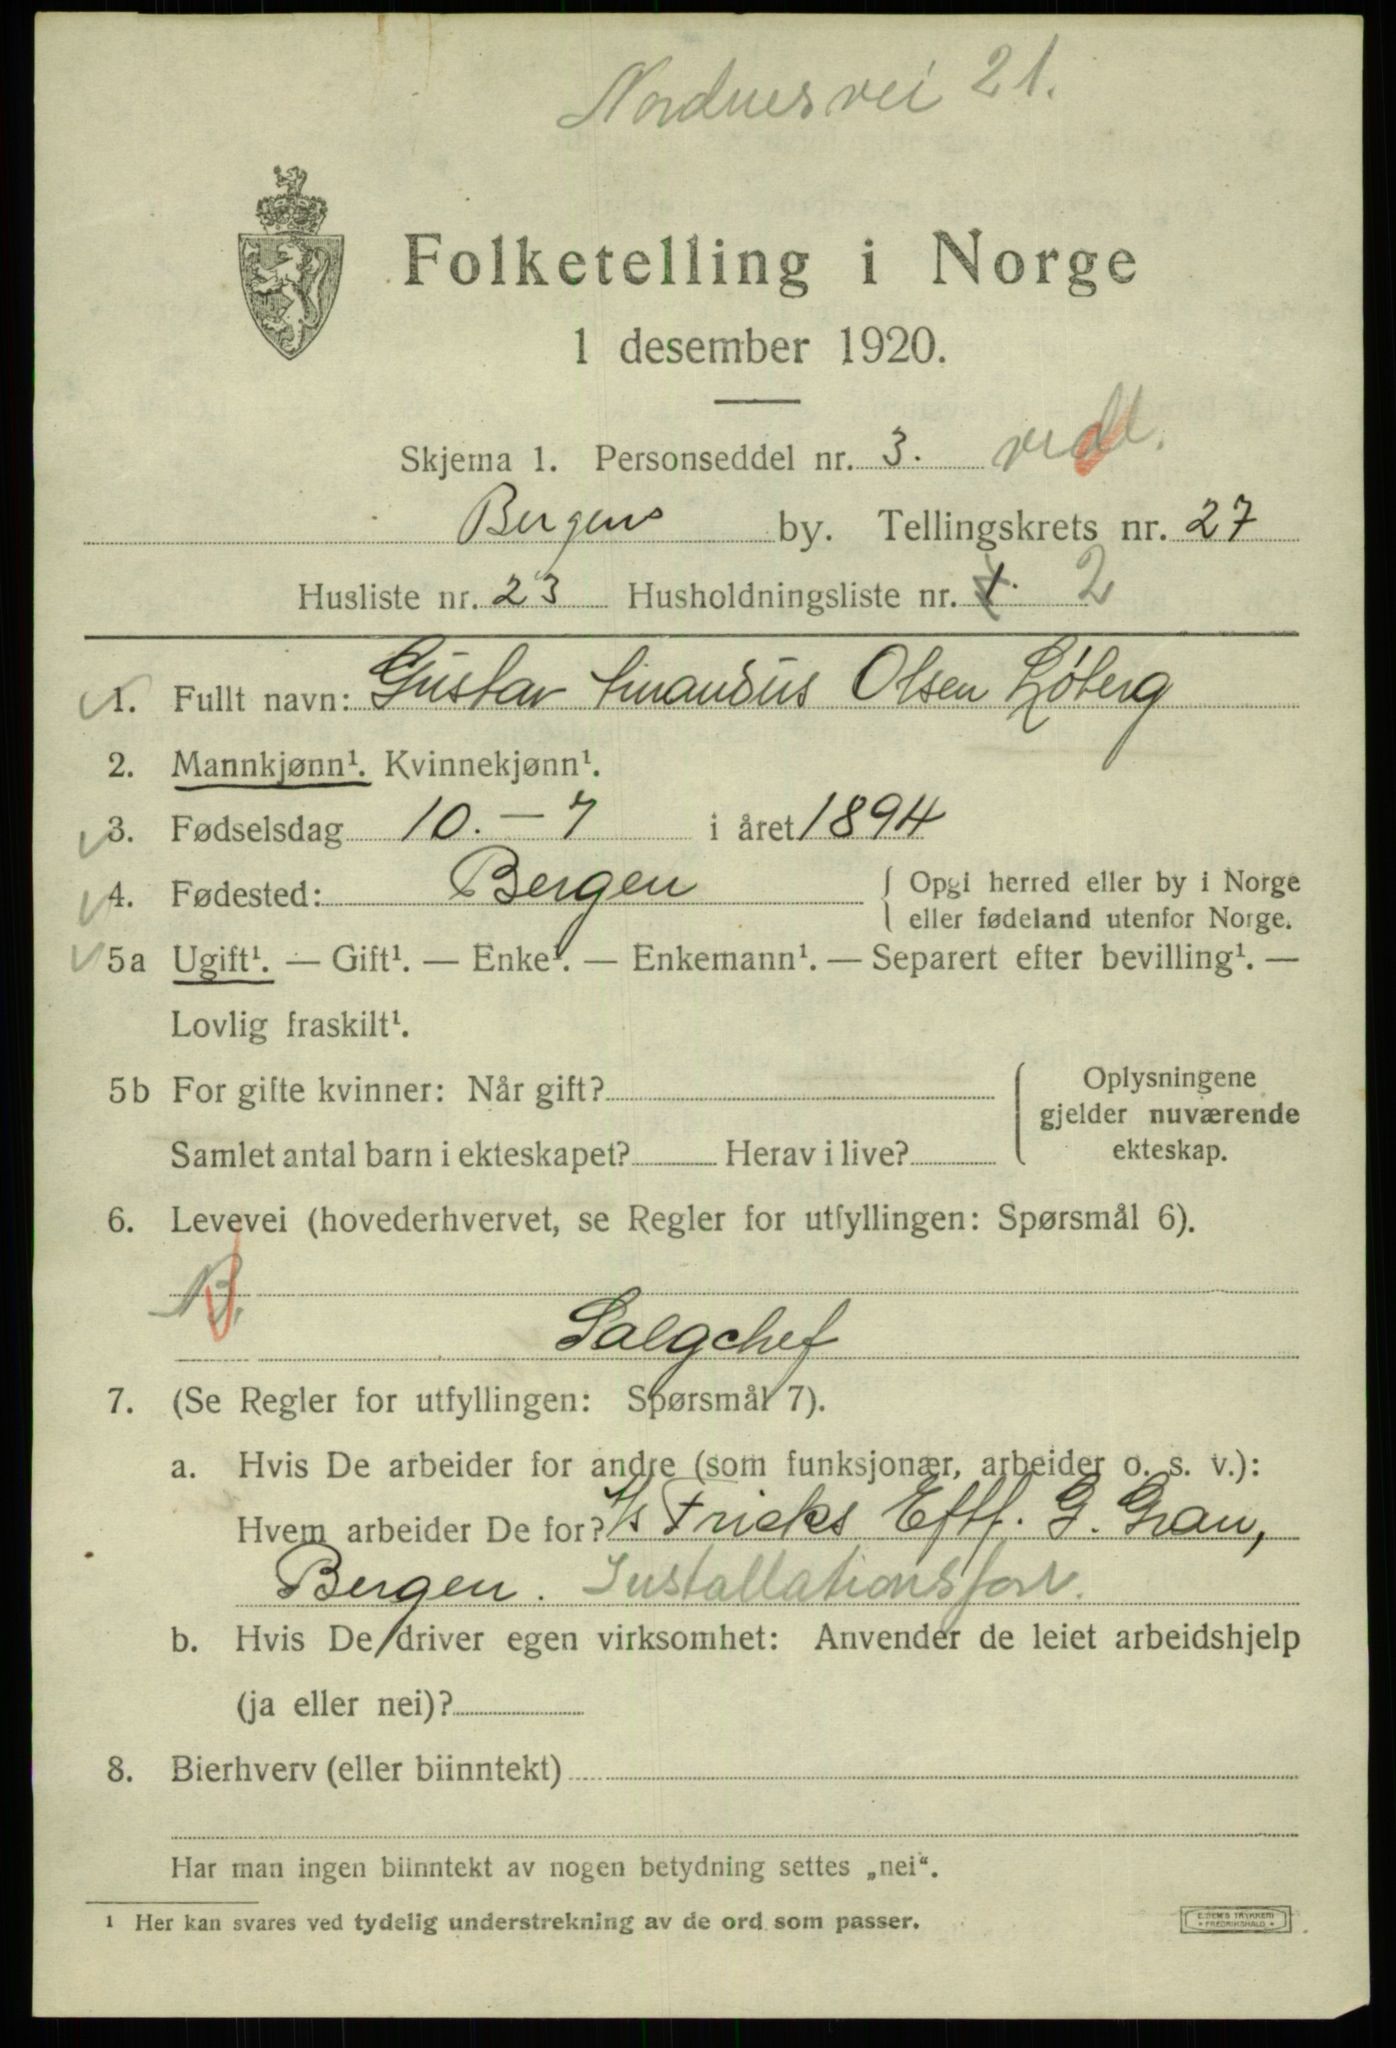 Nordnesvei 21.
Folketelling i Norge
1 desember 1920.
Skjema 1. Personseddel nr. 3.
Bergens by. Tellingskrets nr. 27
Husliste nr. 23 Husholdningsliste nr. 1. 2
1. Fullt navn: Gustav Amandus Olsen Løberg
2. Mannkjønn¹. Kvinnekjønn¹.
3. Fødselsdag 10. – 7 i året 1894
4. Fødested: Bergen { Opgi herred eller by i Norge
eller fødeland utenfor Norge.
5a Ugift¹. — Gift¹. — Enke¹. — Enkemann¹. — Separert efter bevilling¹. —
Lovlig fraskilt¹.
5b For gifte kvinner: Når gift? { Oplysningene
gjelder nuværende
ekteskap.
Samlet antal barn i ekteskapet? Herav i live?
6. Levevei (hovederhvervet, se Regler for utfyllingen: Spørsmål 6).
B.
Salgchef
7. (Se Regler for utfyllingen: Spørsmål 7).
a. Hvis De arbeider for andre (som funksjonær, arbeider o. s. v.):
Hvem arbeider De for? A/s Fricks Eftf. G. Grau,
Bergen. Installationsforr.
b. Hvis De driver egen virksomhet: Anvender de leiet arbeidshjelp
(ja eller nei)?
8. Bierhverv (eller biinntekt)
Har man ingen biinntekt av nogen betydning settes „nei“.
¹ Her kan svares ved tydelig understrekning av de ord som passer.
E. SEM'S TRYKKERI
FREDRIKSHALD